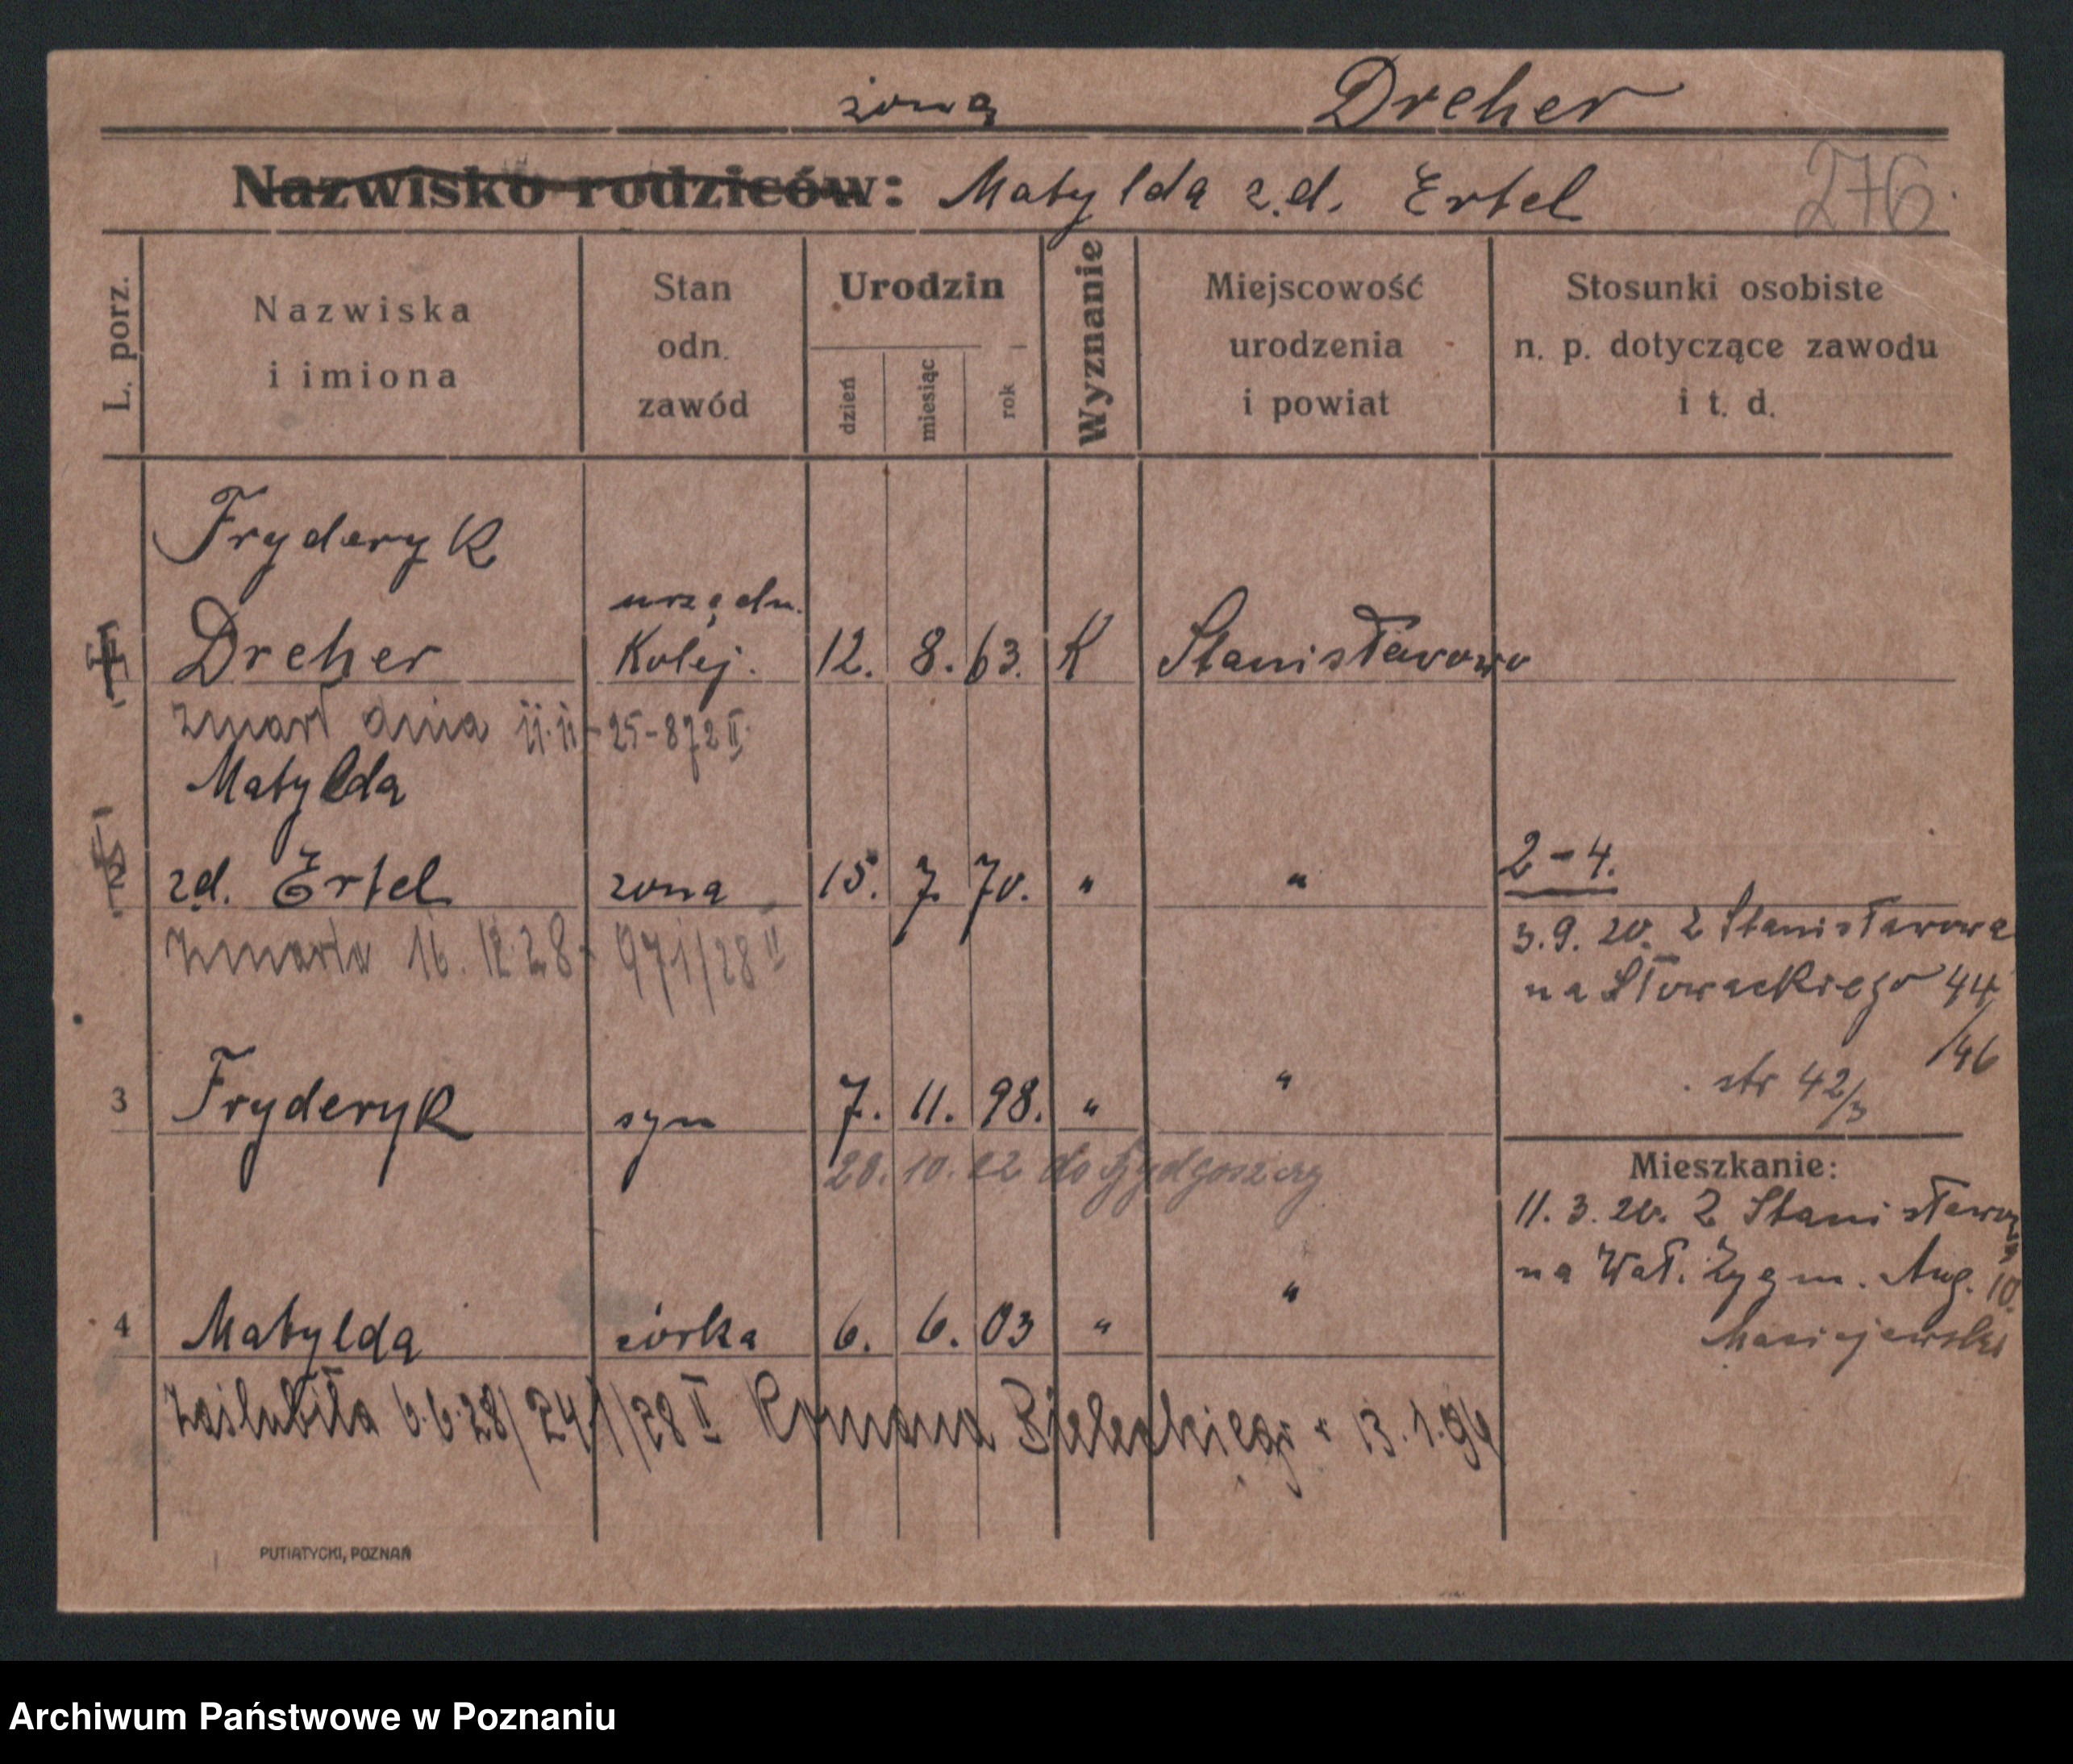 żona Dreher
Nazwisko rodziców: Matylda z.d. Ertel 276
L. porz.
Nazwiska
i imiona
Stan
odn.
zawód
Urodzin
dzień
miesiąc
rok
Wyznanie
Miejscowość
urodzenia
i powiat
Stosunki osobiste
n. p. dotyczące zawodu
i t. d.
Fryderyk
urzędn.
Dreher Kolej. 12. 8. 63. K Stanisławowo
zmarł dnia 11.11-25-872 II
Matylda
2-4.
zd. Ertel zona 15. 7. 70. " "
3.9. 20. Z Stanisławowa
zmarła 16.12.28 - 971/28 II
na Słowackiego 44
/46
str 42/3
3 Fryderyk syn 7. 11. 98. " "
20. 10. 22 do Bydgoszczy
Mieszkanie:
11. 3. 20. Z
na Wał. Zygm. Aug. 10.
Maciejewski
4 Matylda córka 6. 6. 03 " "
zaślubiła 6.6.28/241/28 II Romana Bieleckiego * 13.1.96
PUTIATYCKI, POZNAŃ
Archiwum Państwowe w Poznaniu